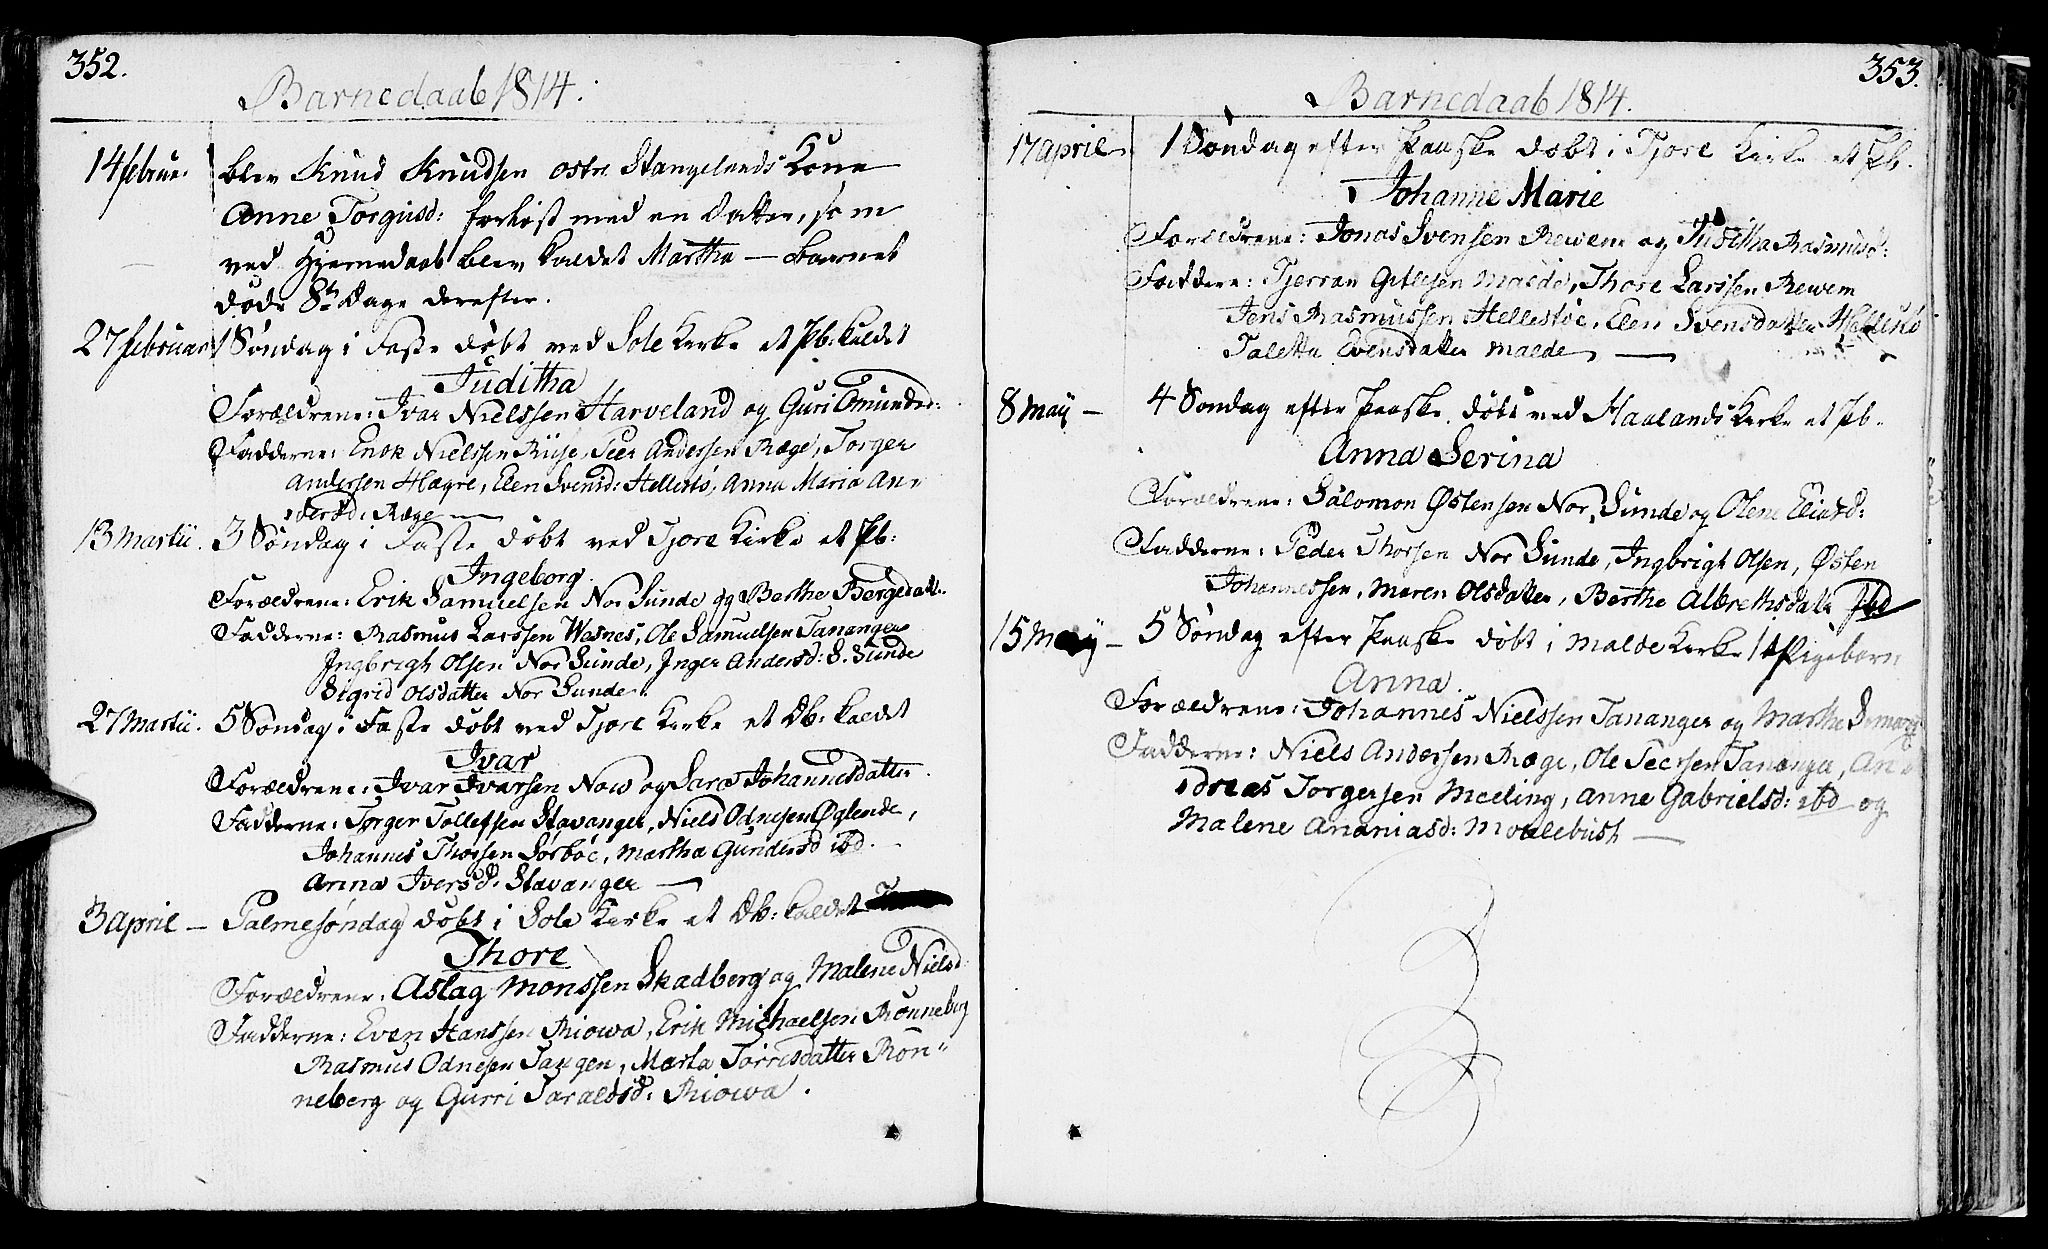 352.
Barnedaab 1814.
14 februar blev Knud Knudsen ostre Stangelands Kone
Anne Torgiusd: forløst med en Datter, som
ved Hjemedaab blev kaldet Martha — Barnet
døde 8te Dage derefter.
27 februar 1 Søndag i Faste døbt ved Sole Kirke et Pb: kaldet
Juditha
Forældrene: Ivar Nielssen Harveland og Guri Omundsd:
Fadderne: Enok Nielssen Riise, Peer Andersen Ræge, Torger
Andersen Hægre, Elen Svensd: Hellestø, Anna Maria An-
dersd: Ræge —
13 Martii. 3 Søndag i Faste døbt ved Tjore Kirke et Pb:
Ingeborg.
Forældrene: Erik Samuelsen Nor Sunde og Berthe Børgedatt..
Fadderne: Rasmus Larssen Wasnes, Ole Samuelsen Tananger
Ingbrigt Olsen Nor Sunde, Inger Andersd: S. Sunde
Sigrid Olsdatter Nor Sunde.
27 Martii. 5 Søndag i Faste døbt ved Tjore Kirke et Db: kaldet
Ivar
Forældrene: Ivar Ivarsen Now og Sara Johannesdatter.
Fadderne: Torger Tollefsen Stavanger, Niels Odnesen Øglende,
Johannes Thorsen Sørbøe, Martha Gundersd ibd.
Anna Iversd: Stavanger —
3 April — Palmesøndag døbt i Sole Kirke et Db: kaldet
Thore
Forældrene: Aslag Monssen Skadberg og Malene Nielsd
Fadderne: Even Hanssen Riowa, Erik Michaelsen Rønneberg
Rasmus Odnesen Tangen, Marta Torrisdatter Røn-
neberg og Gurri Taraldsd: Riowa.
353.
Barnedaab 1814.
17 april 1 Søndag efter Paaske døbt i Tjore Kirke et Pb.
Johanne Marie
Forældrene: Jonas Svensen Rewem og Juditha Rasmusd:
Faddere: Tjerran Getlesen Malde, Thore Larssen Rewem
Jens Rasmussen Hellestøe, Elen Svensdatter Hellestø
Taletta Evensdatter Malde —
8 May — 4 Søndag efter Paaske døbt ved Haalands Kirke et Pb.
Anna Serina
Forældrene: Salomon Østensen Nor Sunde og Olene Eliasd:
Fadderne: Peder Thorsen Nor Sunde, Ingbrigt Olsen, Østen
Johannessen, Maren Olsdatter, Berthe Albrethsdatt ibd
15 May — 5 Søndag efter Paaske døbt i Malde Kirke 1 Pigebarn
Anna.
Forældrene: Johannes Nielssen Tananger og Marthe
Fadderne: Niels Andersen Ræge, Ole Peersen Tananger, An-
dreas Torgersen Meeling, Anne Gabrielsd: ibd og
Malene Ananiasd: Mvalebust —